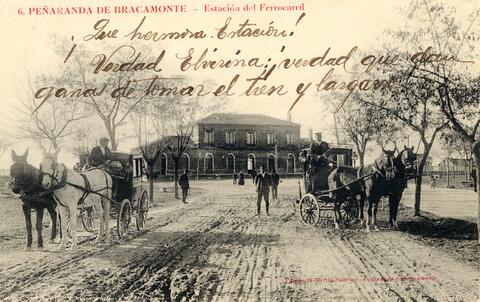 6. PEÑARANDA DE BRACAMONTE - Estación del Ferrocarril
¡Que hermosa Estación!
Verdad Elvirina: ¡verdad que dan
ganas de tomar el tren y largarse